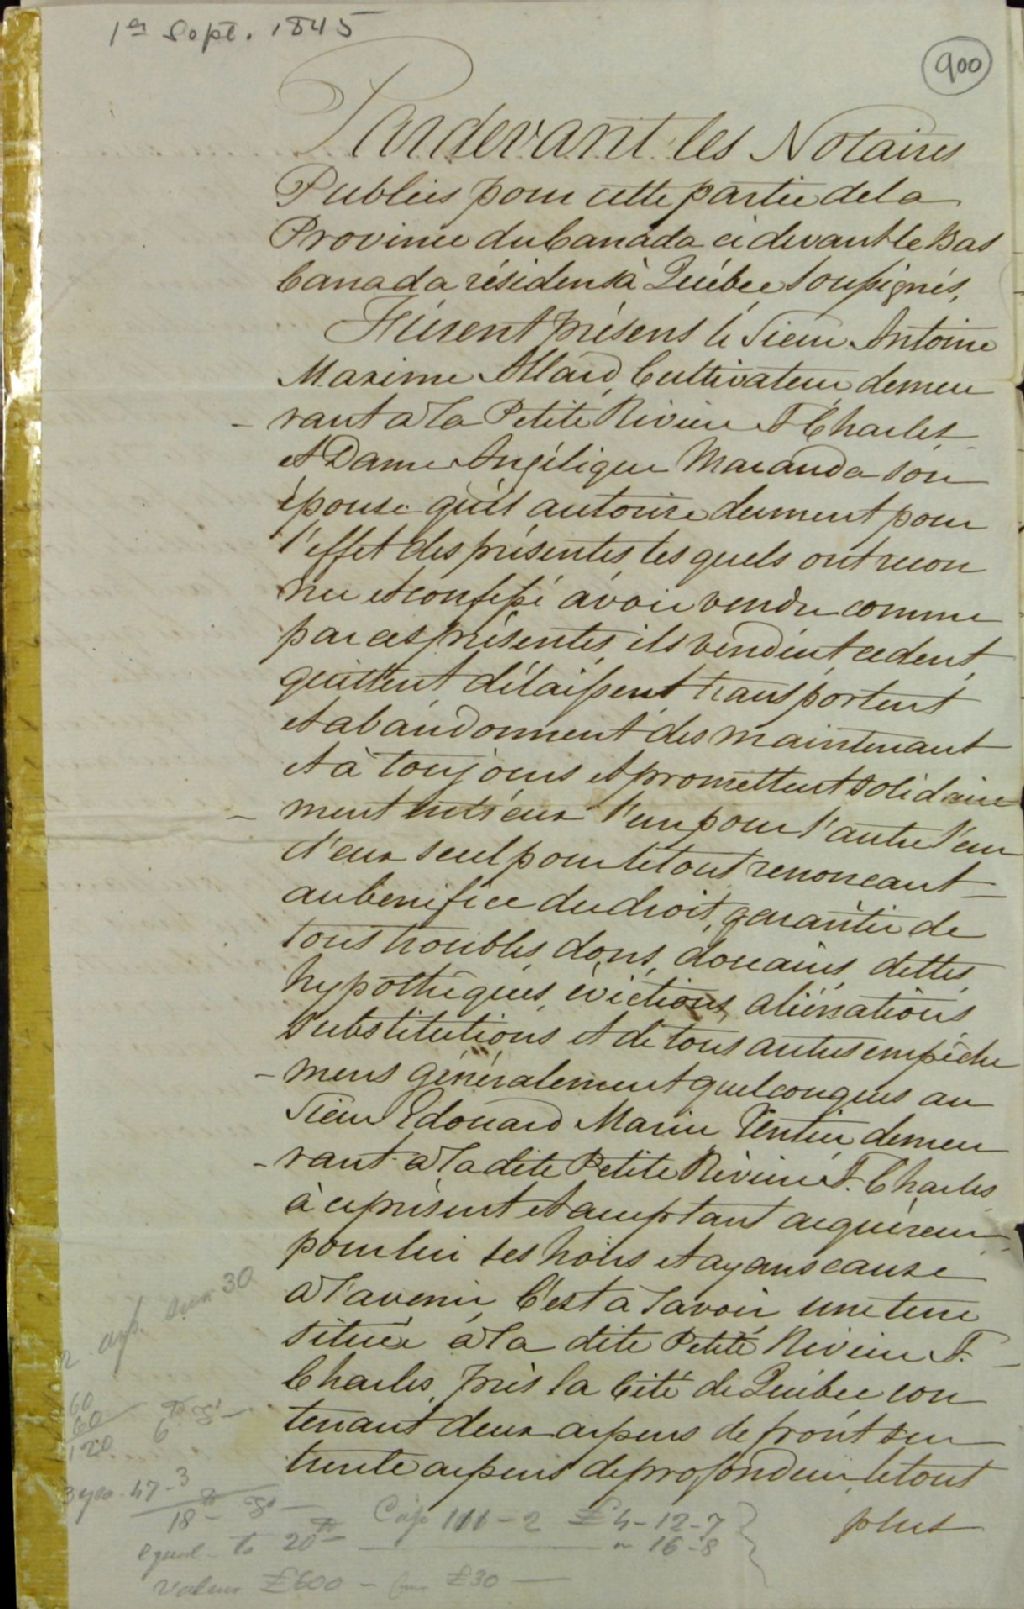 1er Sept. 1845
900
Pardevant les Notaires
Publics pour cette partie de la
Province du Canada ci devant le Bas
Canada résidens à Québec Soussignés,
Fûrent présens le Sieur Antoine
Maxime Allard, Cultivateur, demeu
-rant à la Petite Riviere St Charles
et Dame Angélique Maranda son
épouse qu'il autorise dument pour
l'effet des présentes, lesquels ont recon
nu et confessé avoir vendu comme
par ces présentes ils vendent, cedent,
quittent délaissent transportent
et abandonnent dès maintenant
et à toujours et promettent solidaire
-ment entr'eux l'un pour l'autre l'un
d'eux seul pour le tout renoncant
au benifice du droit, garantir de
tous troubles, dons, douaires, dettes,
hypothèques, evictions, aliénations
substitutions et de tous autres empêche
-mens généralement quelconques au
Sieur Edouard Marin Tintin demeu
-rant à la dite Petite Riviere St. Charles
à ce présent et acceptant acquéreur
pour lui ses hoirs et ayans cause
à l'avenir, C'est à savoir une terre
située à la dite Petite Riviere St.
Charles, près la Cité de Québec con
tenant deux arpens de front sur
trente arpens de profondeur, le tout
plus
2 arp. sur 30
60
60
120
3 47-3
18
equal to 20
Cap 111-2 £4-12-7
16-8
Valeur £600 - £30